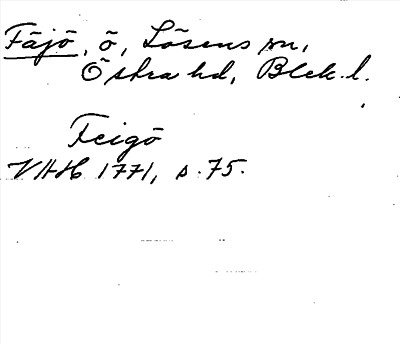 Fäjö, ö, Lösens sn,
Östra hd, Blek. l.
Feigö
VHH 1771, s. 75.